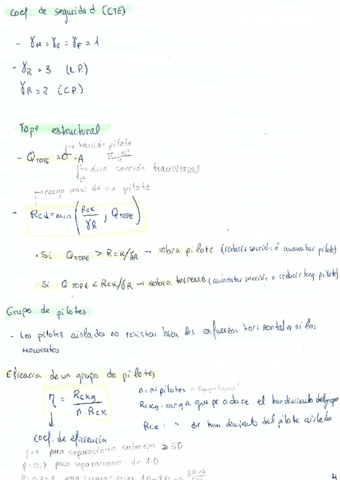 Coef. de seguridad (CTE)
- γM = γE = γF = 1
- γR = 3 (L.P.)
γR = 2 (C.P.)
Tope estructural
tensión pilote
- QTOPE = σ · A
área sección transversal
carga max de un pilote
- Rcd = min (Rck/γR ; QTOPE)
• Si QTOPE > Rck/γR → sobra pilote (reducir sección o aumentar pilote)
Si QTOPE < Rck/γR → sobra terreno (aumentar sección o reducir long. pilote)
Grupo de pilotes
- Los pilotes aislados no resisten bien los esfuerzos horizontales ni los
momentos
Eficacia de un grupo de pilotes
η = Rckg / n · Rck
n = nº pilotes
Rckg = carga que produce el hundimiento del grupo
Rck = " de hundimiento del pilote aislado
coef. de eficiencia
η = 1 para separaciones entre ejes ≥ 3D
η = 0,7 para separaciones de 1D
4